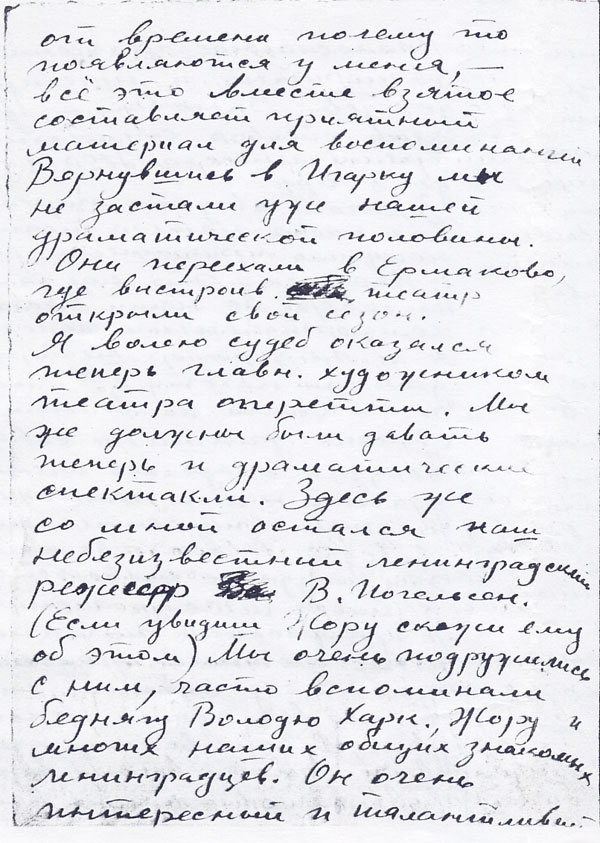 от времени почему то
появляются у меня, —
всё это вместе взятое
составляет приятный
материал для воспоминаний
Вернувшись в Игарку мы
не застали уже нашей
драматической половины.
Они переехали в Ермаково,
где выстроив театр
открыли свой сезон.
Я волею судеб оказался
теперь главн. художником
театра оперетты. Мы
же должны были давать
теперь и драматические
спектакли. Здесь же
со мной остался наш
небезизвестный ленинградский
режиссер В. Иогельсен.
(Если увидиш Жору скажи ему
об этом) Мы очень подружились
с ним, часто вспоминали
беднягу Володю Харк., Жору и
многих наших общих знакомых
ленинградцев. Он очень
интересный и талантливый